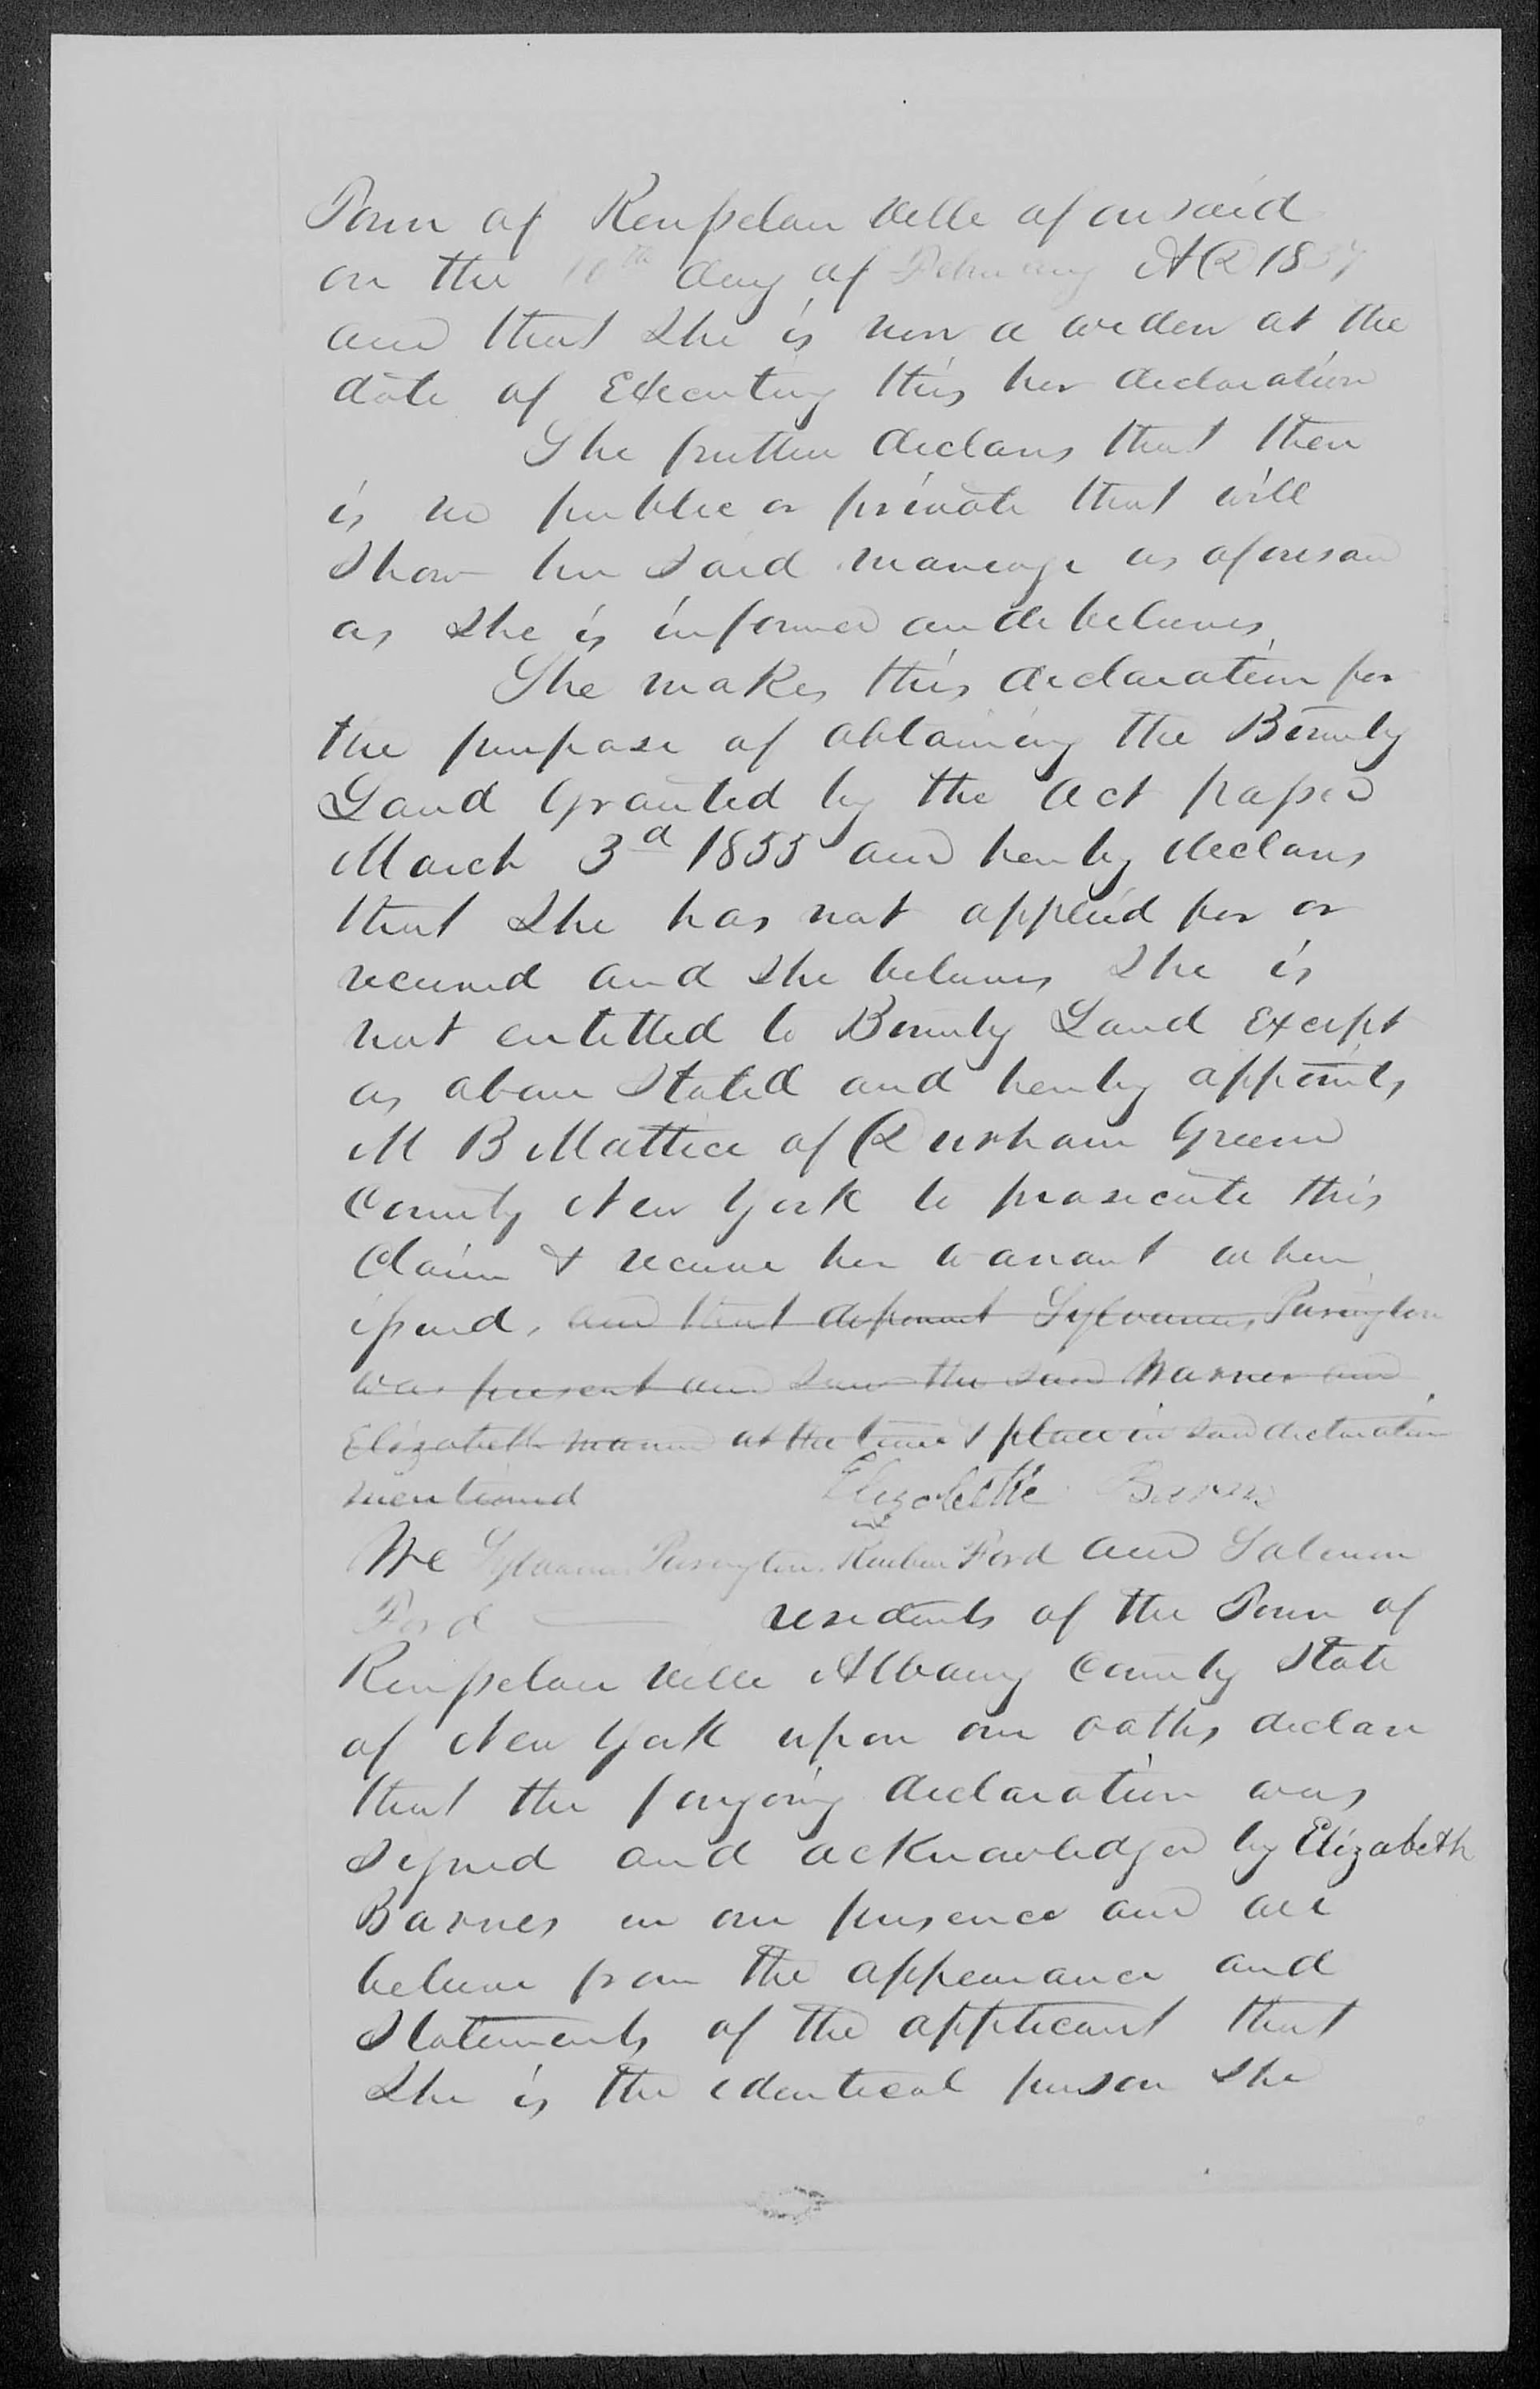 Town of Rensselaer Ville aforesaid
on the 10th day of February AD 1837
and that She is now a widow at the
date of Executing this her declaration
She further declares that there
is no public or private that will
Show her Said marriage as aforesaid
as She is informed and believes
She makes this declaration for
the purpose of obtaining the Bounty
Land Granted by the act passed
March 3d 1855 and hereby declares
that She has not applied for or
received and She believes She is
not entitled to Bounty Land Except
as above Stated and hereby appoints
M B Mattice of Durham Greene
County New York to prosecute this
Claim & receive her warrant when
issued, and that deponent Sylvanus Purington
was present and saw the said Warner and
Elizabeth married at the time & place in said declaration
mentioned Elizabethe Barns
We Sylvanus Purington. Reuben Ford and Salomon
Ford residents of the Town of
Rensselaer Ville Albany County State
of New York upon our oaths declare
that the forgoing declaration was
Signed and acknowledged by Elizabeth
Barnes in our presence and we
believe from the appearance and
Statements of the applicant that
She is the identical person She